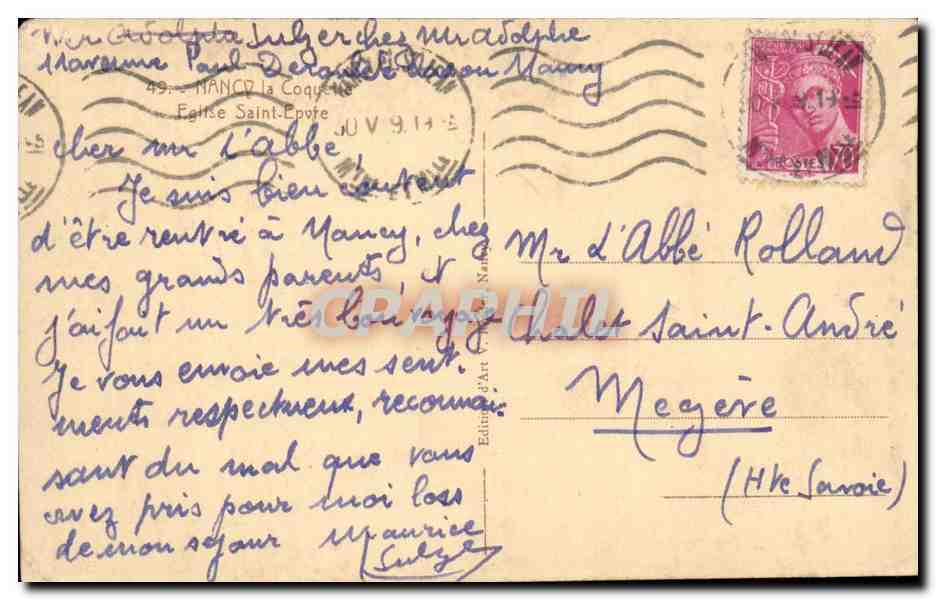 Adolphe Sulzer chez Mr Adolphe
11 avenue Paul Deroulede Nancy
49. - NANCY la Coquette
Eglise Saint-Epvre
30 V 9. 19
POSTES
cher mr L'Abbé,
Je suis bien content
d'être rentré à Nancy, chez
mes grands parents et
j'ai fait un très bon voyage
Je vous envoie mes senti-
ments respectueux, reconnai-
sant du mal que vous
avez pris pour moi lors
de mon sejour Maurice
Sulzer
Mr L'Abbé Rolland
Chalet Saint-André
Megève
(Hte Savoie)
Editions d'Art V.
Nancy
CPAPHIL